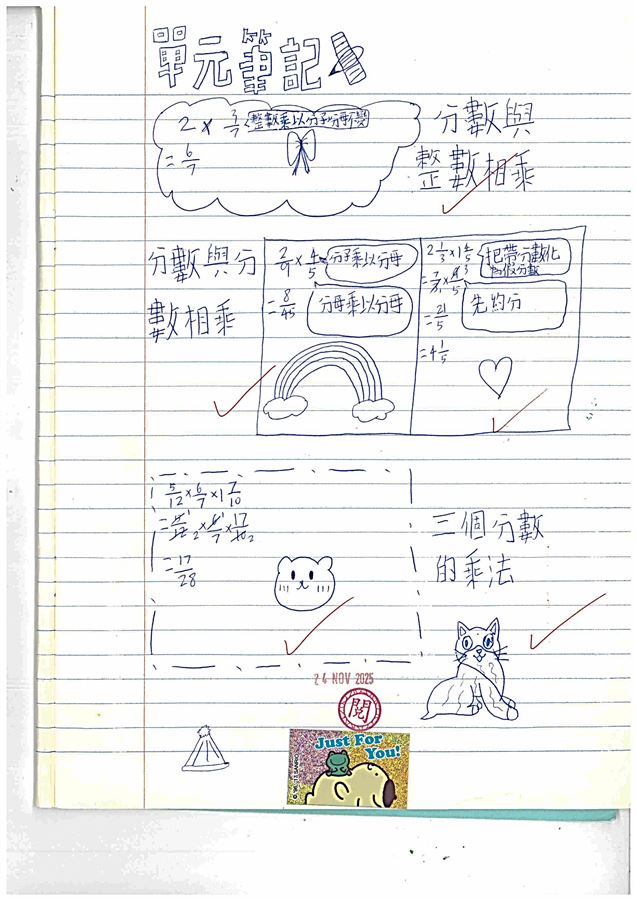 單元筆記
2 × 3/7 整數乘以分子,分母不變
= 6/7
分數與
整數相乘
分數與分
數相乘
2/9 × 4/5 分子乘以分母
= 8/45 分母乘以分母
2 1/3 × 1 4/5 把帶分數化為假分數
= 7/3 × 9/5 3 先約分
= 21/5
= 4 1/5
5/12 × 6/7 × 1 7/10
= 5/12 2 × 6 1/7 × 17/10 2
= 17/28
三個分數
的乘法
24 NOV 2025
閱
Just For
You!